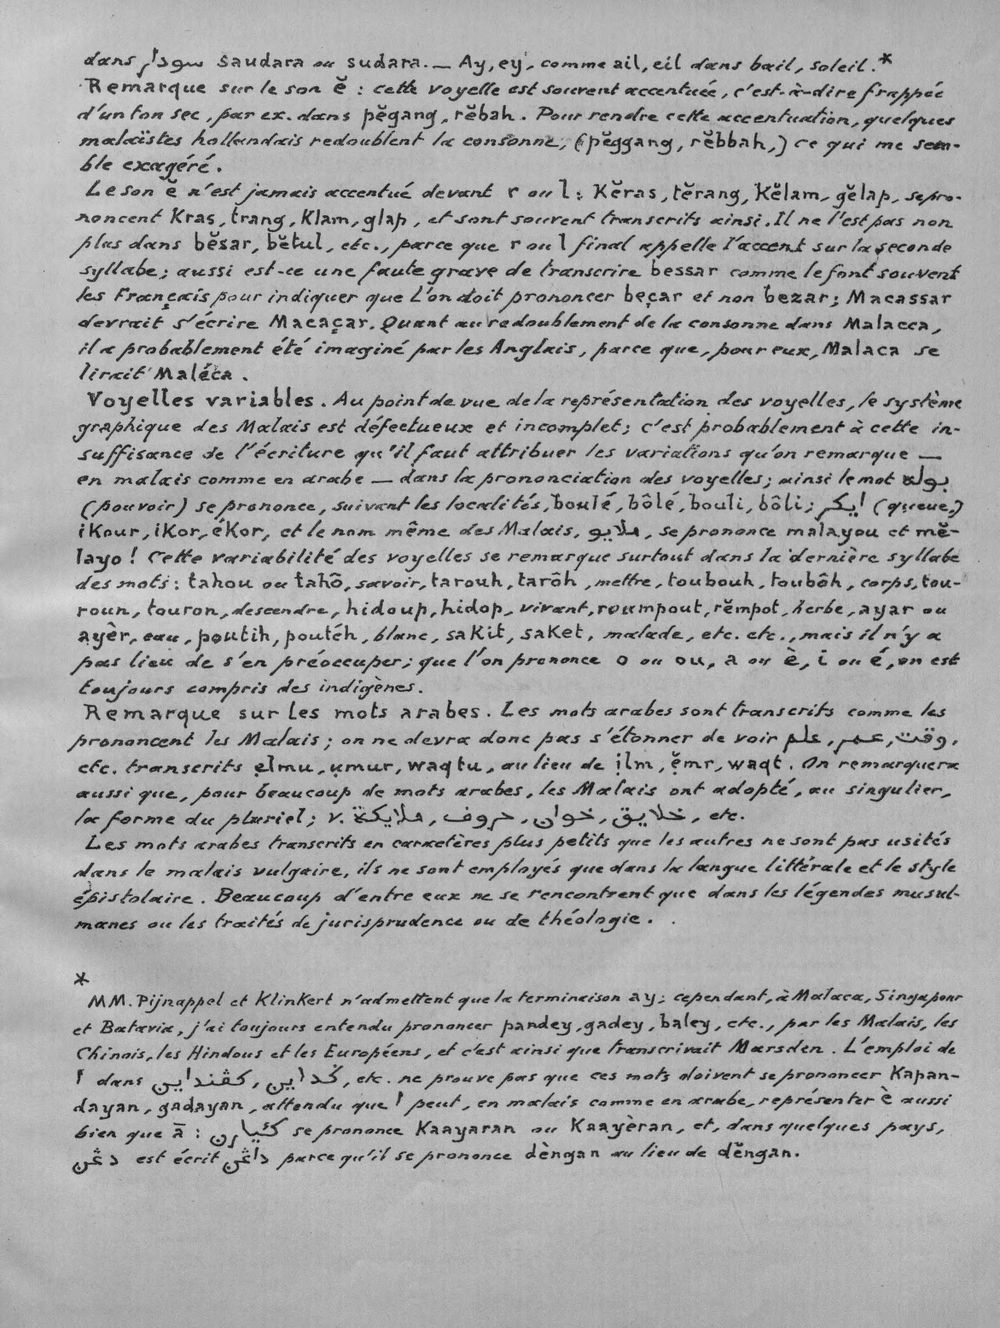 dans سودار saudara ou sudara. — Ay, ey, comme ail, eil dans bail, soleil.*
Remarque sur le son ĕ : cette voyelle est souvent accentuée, c'est-à-dire frappée
d'un ton sec, par ex. dans pĕgang, rĕbah. Pour rendre cette accentuation, quelques
malaïstes hollandais redoublent la consonne, (pĕggang, rĕbbah,) ce qui me sem-
ble exagéré.
Le son ĕ n'est jamais accentué devant r ou l : Kĕras, tĕrang, Kĕlam, gĕlap, se pro-
noncent Kras, trang, Klam, glap, et sont souvent transcrits ainsi. Il ne l'est pas non
plus dans bĕsar, bĕtul, etc., parce que r ou l final appelle l'accent sur la seconde
syllabe; aussi est-ce une faute grave de transcrire bessar comme le font souvent
les Français pour indiquer que l'on doit prononcer beçar et non bezar; Macassar
devrait s'écrire Macaçar. Quant au redoublement de la consonne dans Malacca,
il a probablement été imaginé par les Anglais, parce que, pour eux, Malaca se
lirait Maléca.
Voyelles variables. Au point de vue de la représentation des voyelles, le système
graphique des Malais est défectueux et incomplet; c'est probablement à cette in-
suffisance de l'écriture qu'il faut attribuer les variations qu'on remarque —
en malais comme en arabe — dans la prononciation des voyelles; ainsi le mot بوله
(pouvoir) se prononce, suivant les localités, boulé, bôlé, bouli, bôli; ايكر (queue,)
iKour, iKor, éKor, et le nom même des Malais, ملايو, se prononce malayou et mĕ-
layo! Cette variabilité des voyelles se remarque surtout dans la dernière syllabe
des mots: tahou ou tahô, savoir, tarouh, tarôh, mettre, toubouh, toubôh, corps, tou-
roun, touron, descendre, hidoup, hidop, vivant, roumpout, rĕmpot, herbe, ayar ou
ayèr, eau, poutih, poutéh, blanc, saKit, saKet, malade, etc. etc., mais il n'y a
pas lieu de s'en préoccuper; que l'on prononce o ou ou, a ou è, i ou é, on est
toujours compris des indigènes.
Remarque sur les mots arabes. Les mots arabes sont transcrits comme les
prononcent les Malais; on ne devra donc pas s'étonner de voir وقت, عمر, علم,
etc. transcrits ẹlmu, ụmur, waqtu, au lieu de ịlm, ẹ̆mr, waqt. On remarquera
aussi que, pour beaucoup de mots arabes, les Malais ont adopté, au singulier,
la forme du pluriel; v. خلايق, خوان, حروف, ملايكة, etc.
Les mots arabes transcrits en caractères plus petits que les autres ne sont pas usités
dans le malais vulgaire, ils ne sont employés que dans la langue littérale et le style
épistolaire. Beaucoup d'entre eux ne se rencontrent que dans les légendes musul-
manes ou les traités de jurisprudence ou de théologie.
*
MM. Pijnappel et Klinkert n'admettent que la terminaison ay; cependant, à Malaca, Singapour
et Batavia, j'ai toujours entendu prononcer pandey, gadey, baley, etc., par les Malais, les
Chinois, les Hindous et les Européens, et c'est ainsi que transcrivait Marsden. L'emploi de
ا dans كڤنداين, ݢداين, etc. ne prouve pas que ces mots doivent se prononcer Kapan-
dayan, gadayan, attendu que ا peut, en malais comme en arabe, représenter è aussi
bien que ā : كئيارن se prononce Kaayaran ou Kaayèran, et, dans quelques pays,
دڠن est écrit داڠن parce qu'il se prononce dèngan au lieu de dĕngan.